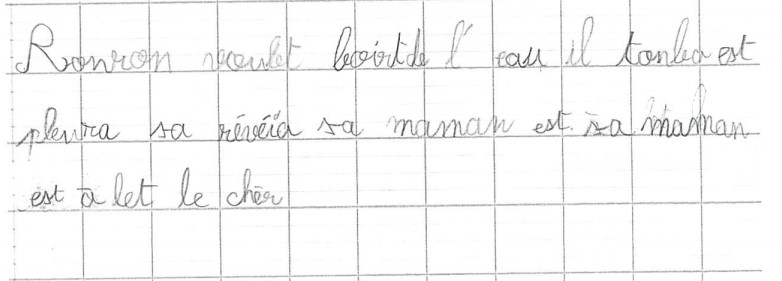 Ronron voulet boirt de l' eau il tonba est
pleura sa révéia sa maman est sa maman
est a let le cher